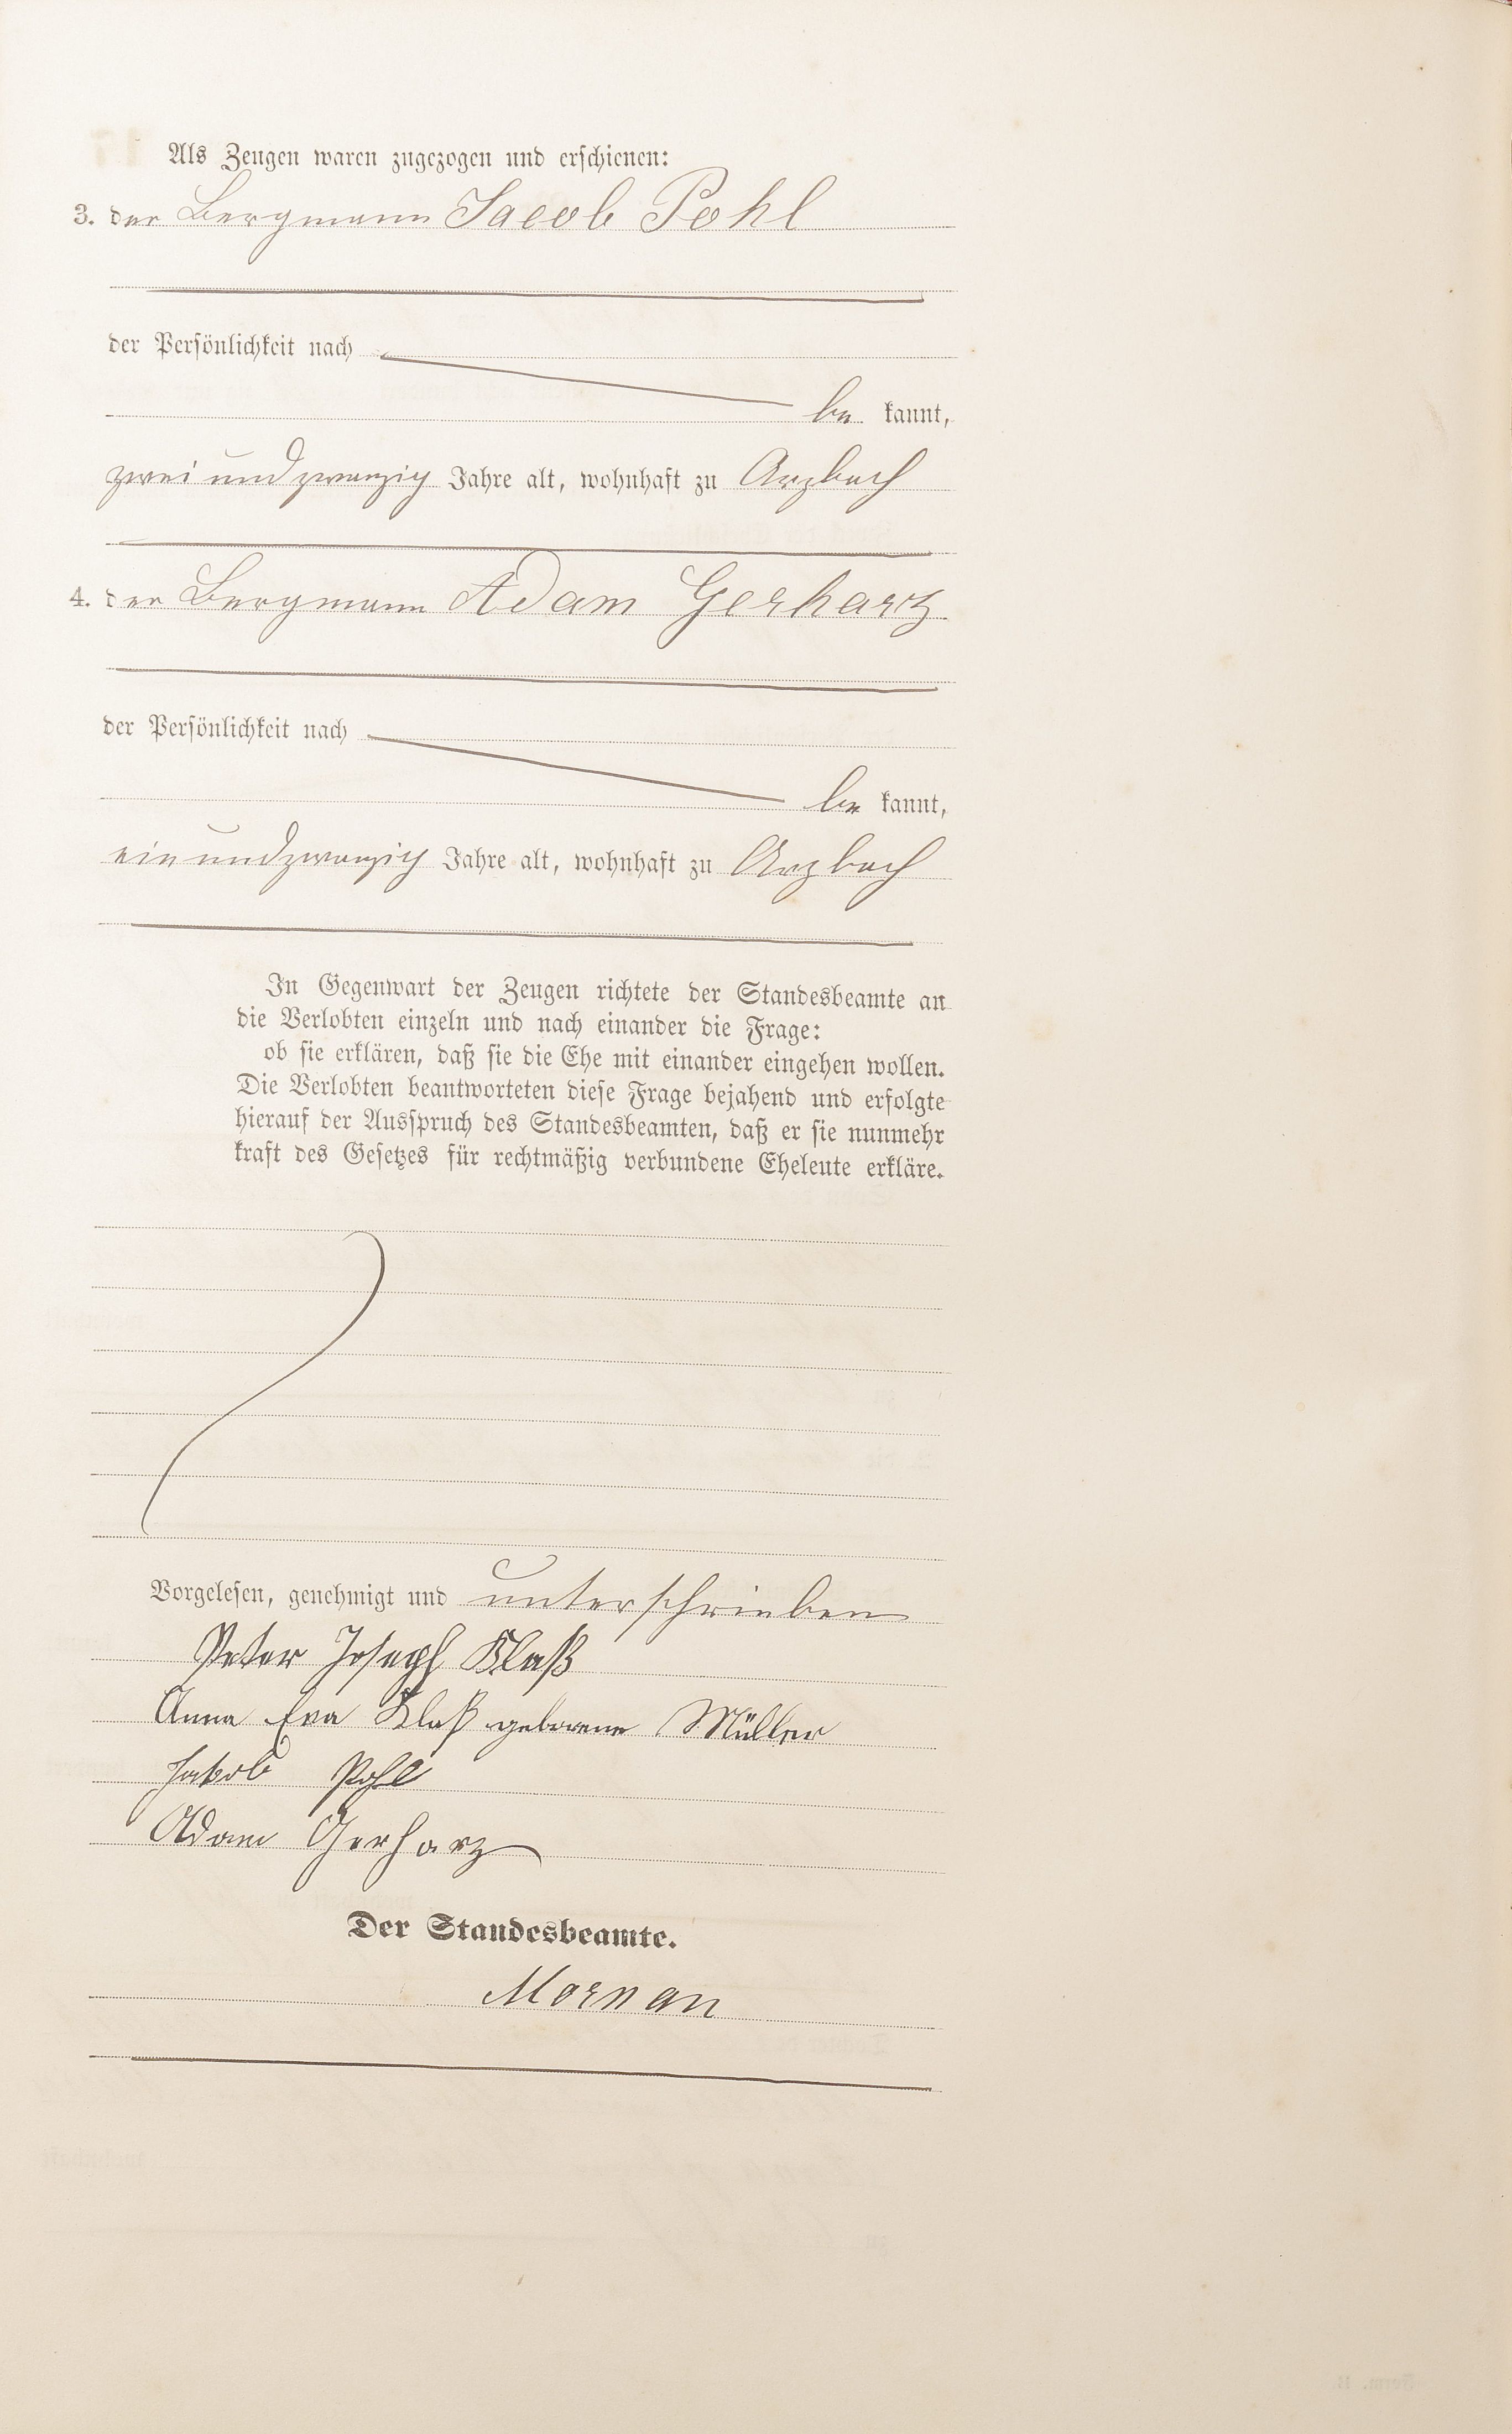 Als Zeugen waren zugezogen und erschienen:
3. der Bergmann Jacob Pohl
der Persönlichkeit nach
be kannt,
zwei und zwanzig Jahre alt, wohnhaft zu Arzbach
4. der Bergmann Adam Gerhartz
der Persönlichkeit nach
be kannt,
ein und zwanzig Jahre alt, wohnhaft zu Arzbach
In Gegenwart der Zeugen richtete der Standesbeamte an
die Verlobten einzeln und nach einander die Frage:
ob sie erklären, daß sie die Ehe mit einander eingehen wollen.
Die Verlobten beantworteten diese Frage bejahend und erfolgte
hierauf der Ausspruch des Standesbeamten, daß er sie nunmehr
kraft des Gesetzes für rechtmäßig verbundene Eheleute erkläre.
Vorgelesen, genehmigt und unterschrieben
Peter Joseph Klaß
Anna Eva Klaß geborene Müller
Jakob Pohl
Adam Gerharz
Der Standesbeamte.